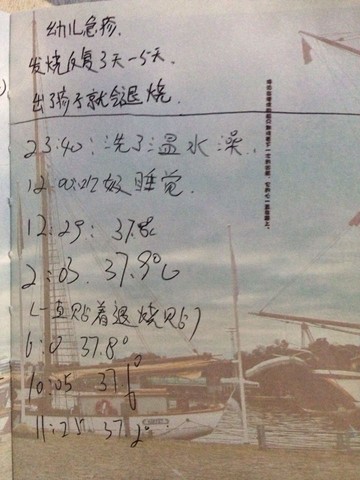 幼儿急疹.
发烧反复3天-5天.
出了疹子就会退烧.
23:40:洗了温水澡.
12:00:吃奶睡觉.
12:29: 37.8c
2:03. 37.9°C
(一直贴着退烧贴)
6:0 37.8°
10:05 37.6°
11:25 37.2°